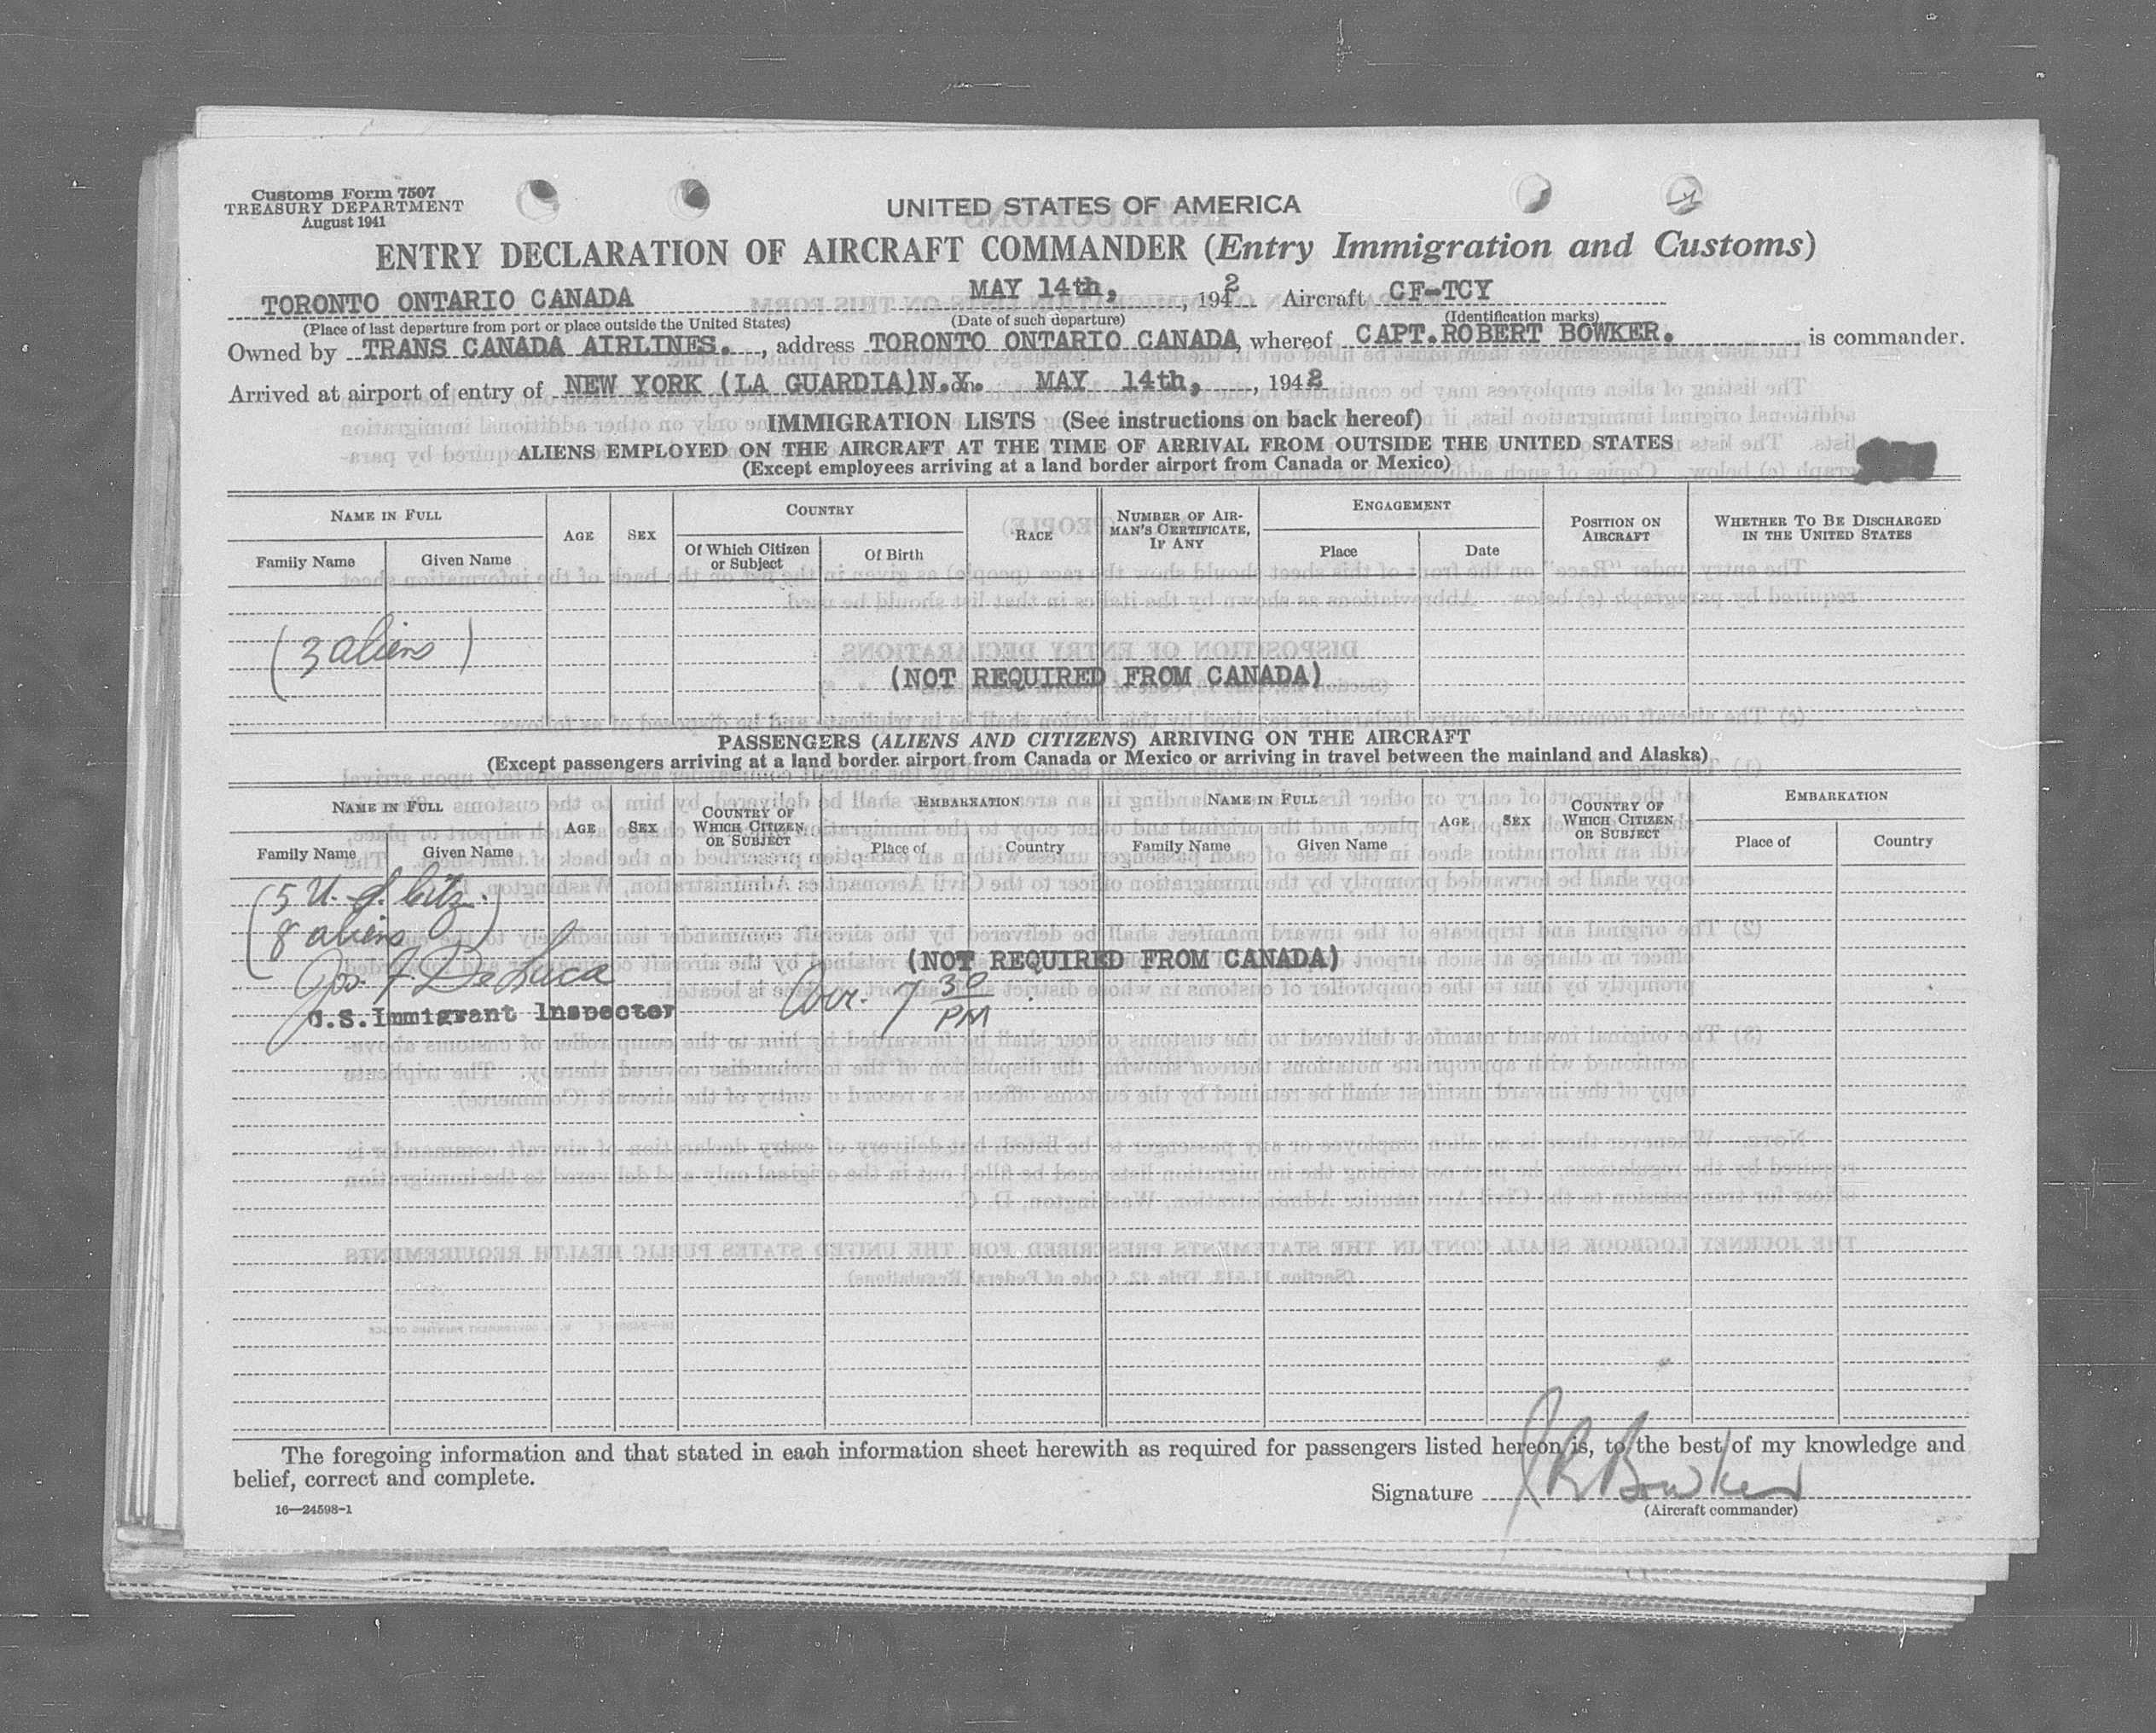 Customs Form 7507
TREASURY DEPARTMENT
August 1941
UNITED STATES OF AMERICA
ENTRY DECLARATION OF AIRCRAFT COMMANDER (Entry Immigration and Customs)
TORONTO ONTARIO CANADA MAY 14th, , 1942 Aircraft CF-TCY
(Place of last departure from port or place outside the United States) (Date of such departure) (Identification marks)
Owned by TRANS CANADA AIRLINES. , address TORONTO ONTARIO CANADA, whereof CAPT.ROBERT BOWKER. is commander.
Arrived at airport of entry of NEW YORK (LA GUARDIA)N.Y. on MAY 14th, , 1942
IMMIGRATION LISTS (See instructions on back hereof)
ALIENS EMPLOYED ON THE AIRCRAFT AT THE TIME OF ARRIVAL FROM OUTSIDE THE UNITED STATES
(Except employees arriving at a land border airport from Canada or Mexico)
NAME IN FULL AGE SEX COUNTRY RACE NUMBER OF AIRMAN'S CERTIFICATE, IF ANY ENGAGEMENT POSITION ON AIRCRAFT WHETHER TO BE DISCHARGED IN THE UNITED STATES
Family Name Given Name Of Which Citizen or Subject Of Birth Place Date
(3 aliens)
(NOT REQUIRED FROM CANADA)
PASSENGERS (ALIENS AND CITIZENS) ARRIVING ON THE AIRCRAFT
(Except passengers arriving at a land border airport from Canada or Mexico or arriving in travel between the mainland and Alaska)
NAME IN FULL AGE SEX COUNTRY OF WHICH CITIZEN OR SUBJECT EMBARKATION NAME IN FULL AGE SEX COUNTRY OF WHICH CITIZEN OR SUBJECT EMBARKATION
Family Name Given Name Place of Country Family Name Given Name Place of Country
(5 U.S. Citz.
8 aliens)
(NOT REQUIRED FROM CANADA)
Jos. J. DeLuca
U.S.Immigrant Inspector
Arr. 7 30 PM
The foregoing information and that stated in each information sheet herewith as required for passengers listed hereon is, to the best of my knowledge and
belief, correct and complete.
Signature J R Bowker
(Aircraft commander)
16—24598-1